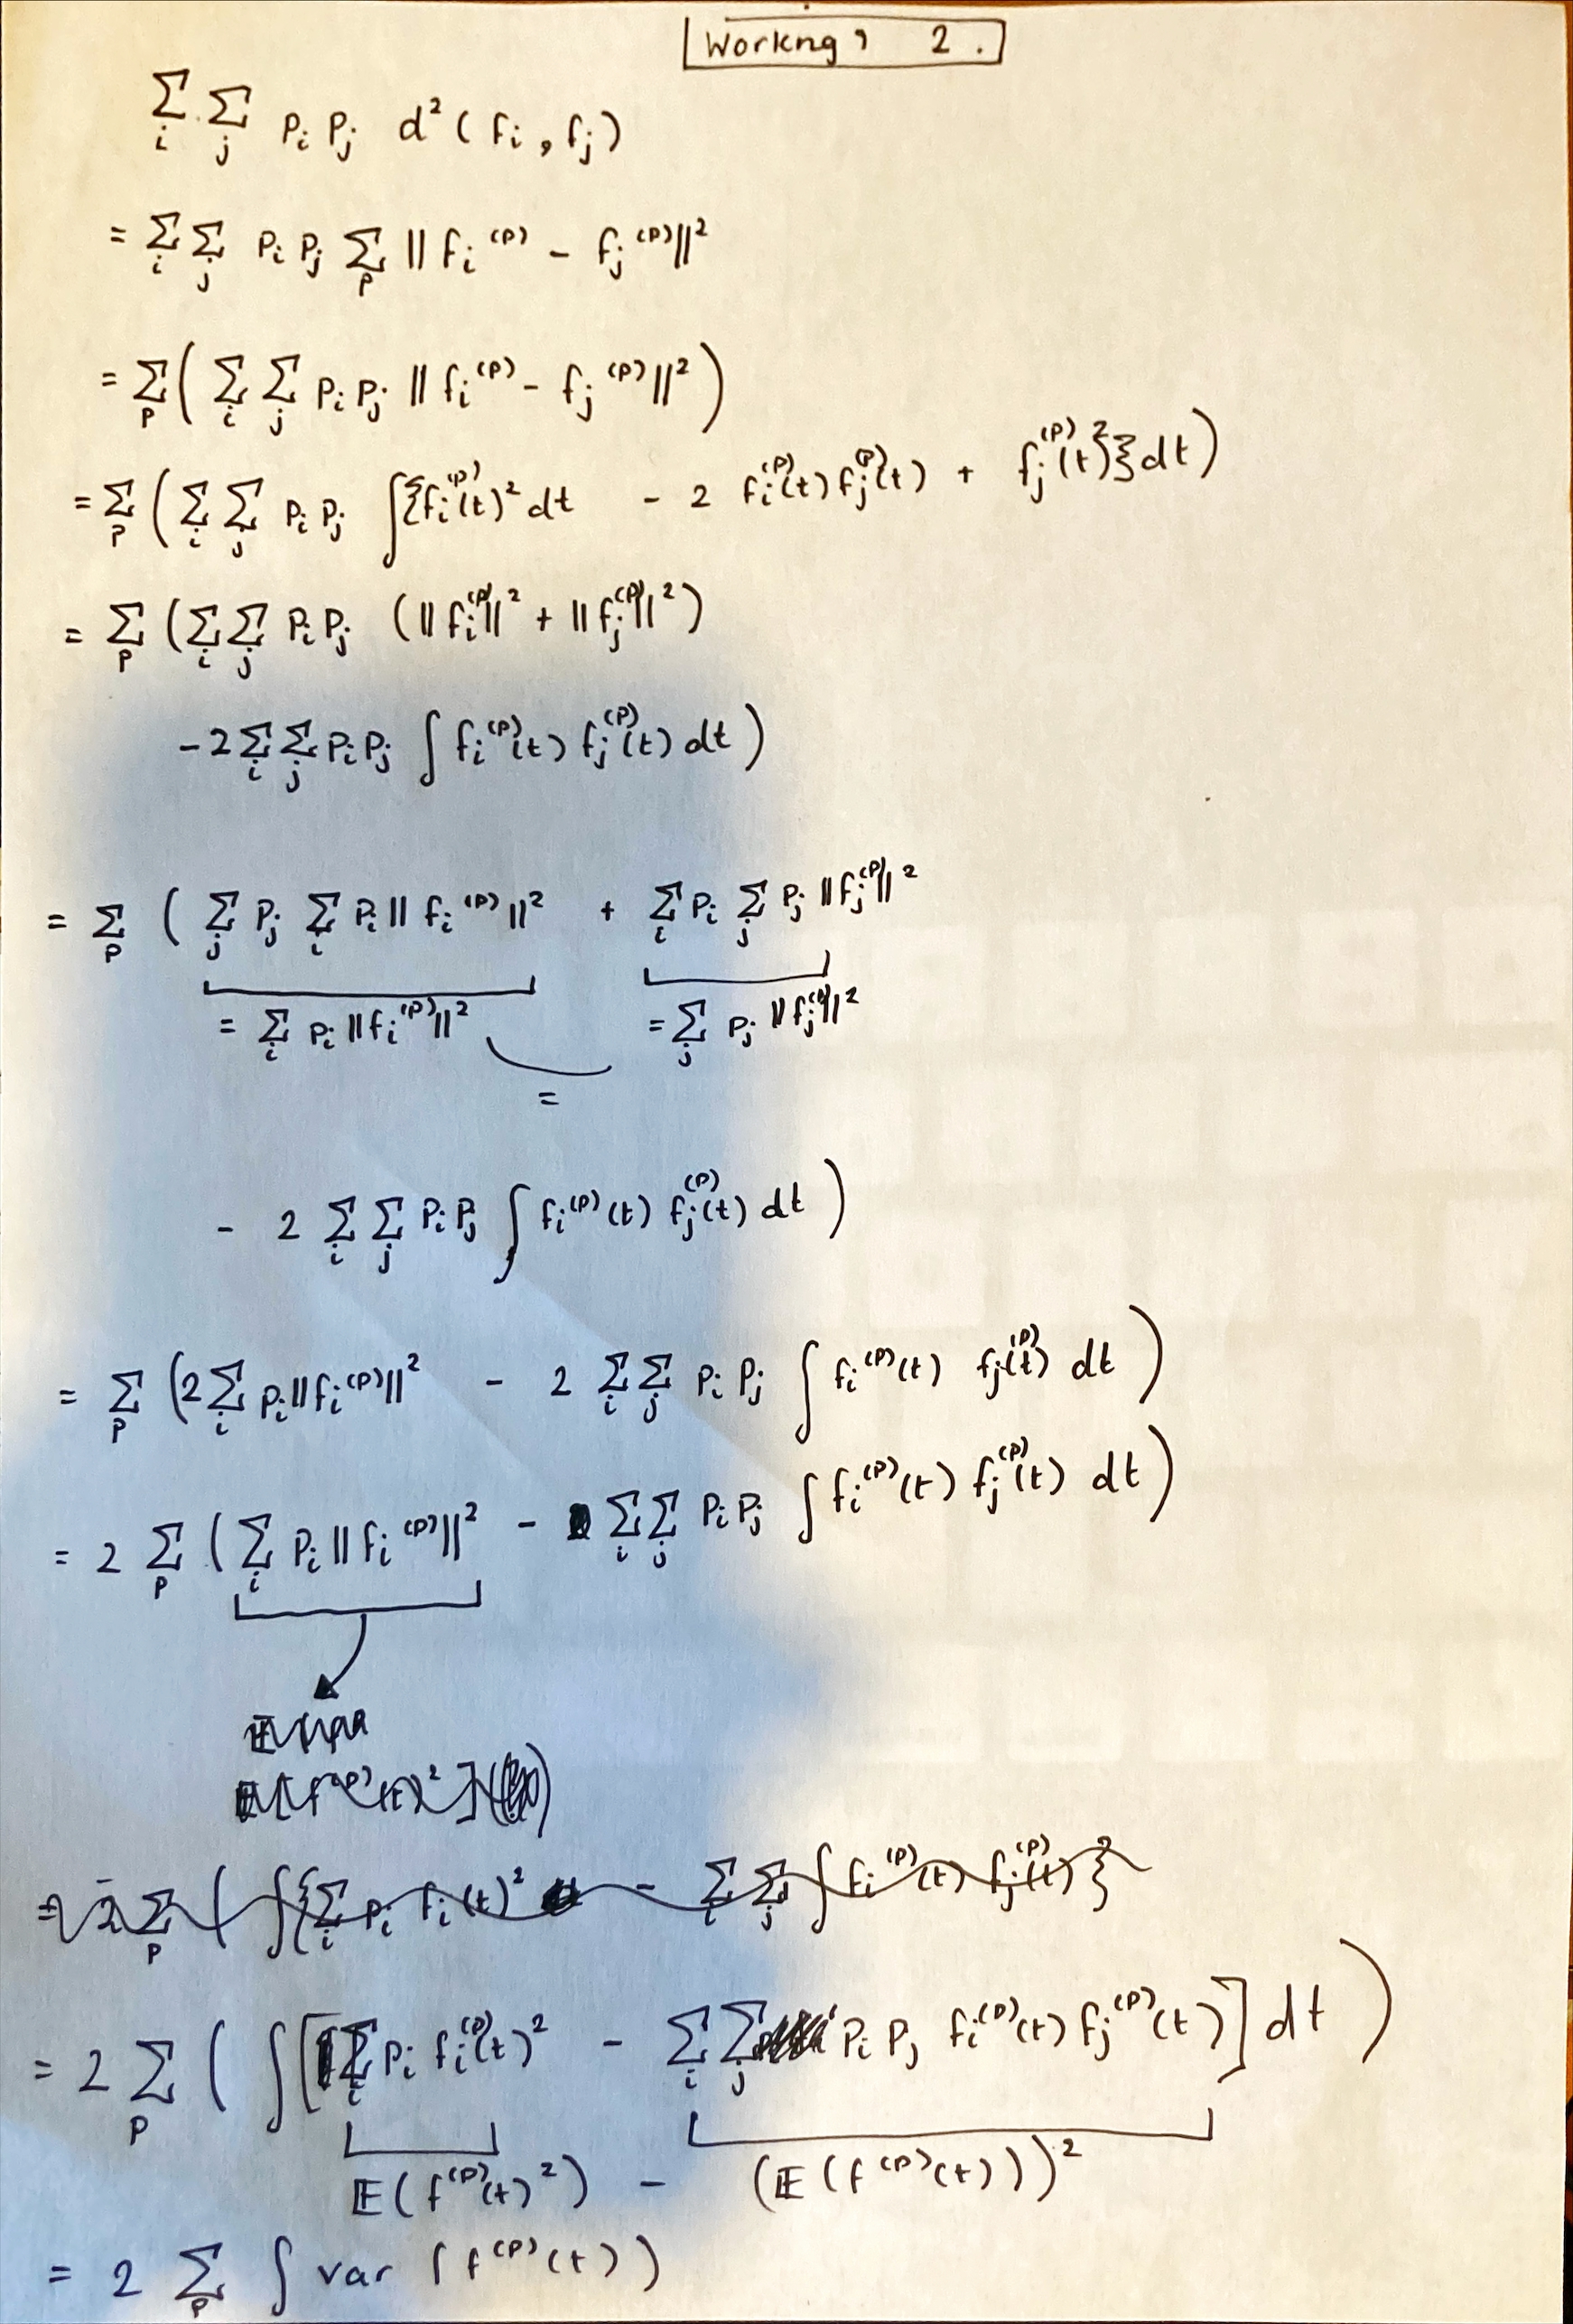 Workng, 2.
∑_i ∑_j p_i p_j d²(f_i, f_j)
= ∑_i ∑_j p_i p_j ∑_p ||f_i^(p) - f_j^(p)||²
= ∑_p ( ∑_i ∑_j p_i p_j ||f_i^(p) - f_j^(p)||² )
= ∑_p ( ∑_i ∑_j p_i p_j ∫{f_i^(p)(t)² dt - 2 f_i^(p)(t) f_j^(p)(t) + f_j^(p)(t)²} dt )
= ∑_p ( ∑_i ∑_j p_i p_j (||f_i^(p)||² + ||f_j^(p)||²)
- 2 ∑_i ∑_j p_i p_j ∫ f_i^(p)(t) f_j^(p)(t) dt )
= ∑_p ( ∑_j p_j ∑_i p_i ||f_i^(p)||² + ∑_i p_i ∑_j p_j ||f_j^(p)||²
= ∑_i p_i ||f_i^(p)||² = ∑_j p_j ||f_j^(p)||²
=
- 2 ∑_i ∑_j p_i p_j ∫ f_i^(p)(t) f_j^(p)(t) dt )
= ∑_p ( 2 ∑_i p_i ||f_i^(p)||² - 2 ∑_i ∑_j p_i p_j ∫ f_i^(p)(t) f_j^(p)(t) dt )
= 2 ∑_p ( ∑_i p_i ||f_i^(p)||² - ∑_i ∑_j p_i p_j ∫ f_i^(p)(t) f_j^(p)(t) dt )
E[f^(p)(t)²]
= 2 ∑_p ( ∫{∑_i p_i f_i(t)² - ∑_i ∑_j ∫ f_i^(p)(t) f_j^(p)(t) }
= 2 ∑_p ( ∫[ ∑_i p_i f_i^(p)(t)² - ∑_i ∑_j p_i p_j f_i^(p)(t) f_j^(p)(t) ] dt )
𝔼(f^(p)(t)²) - (𝔼(f^(p)(t)))²
= 2 ∑_p ∫ var(f^(p)(t))